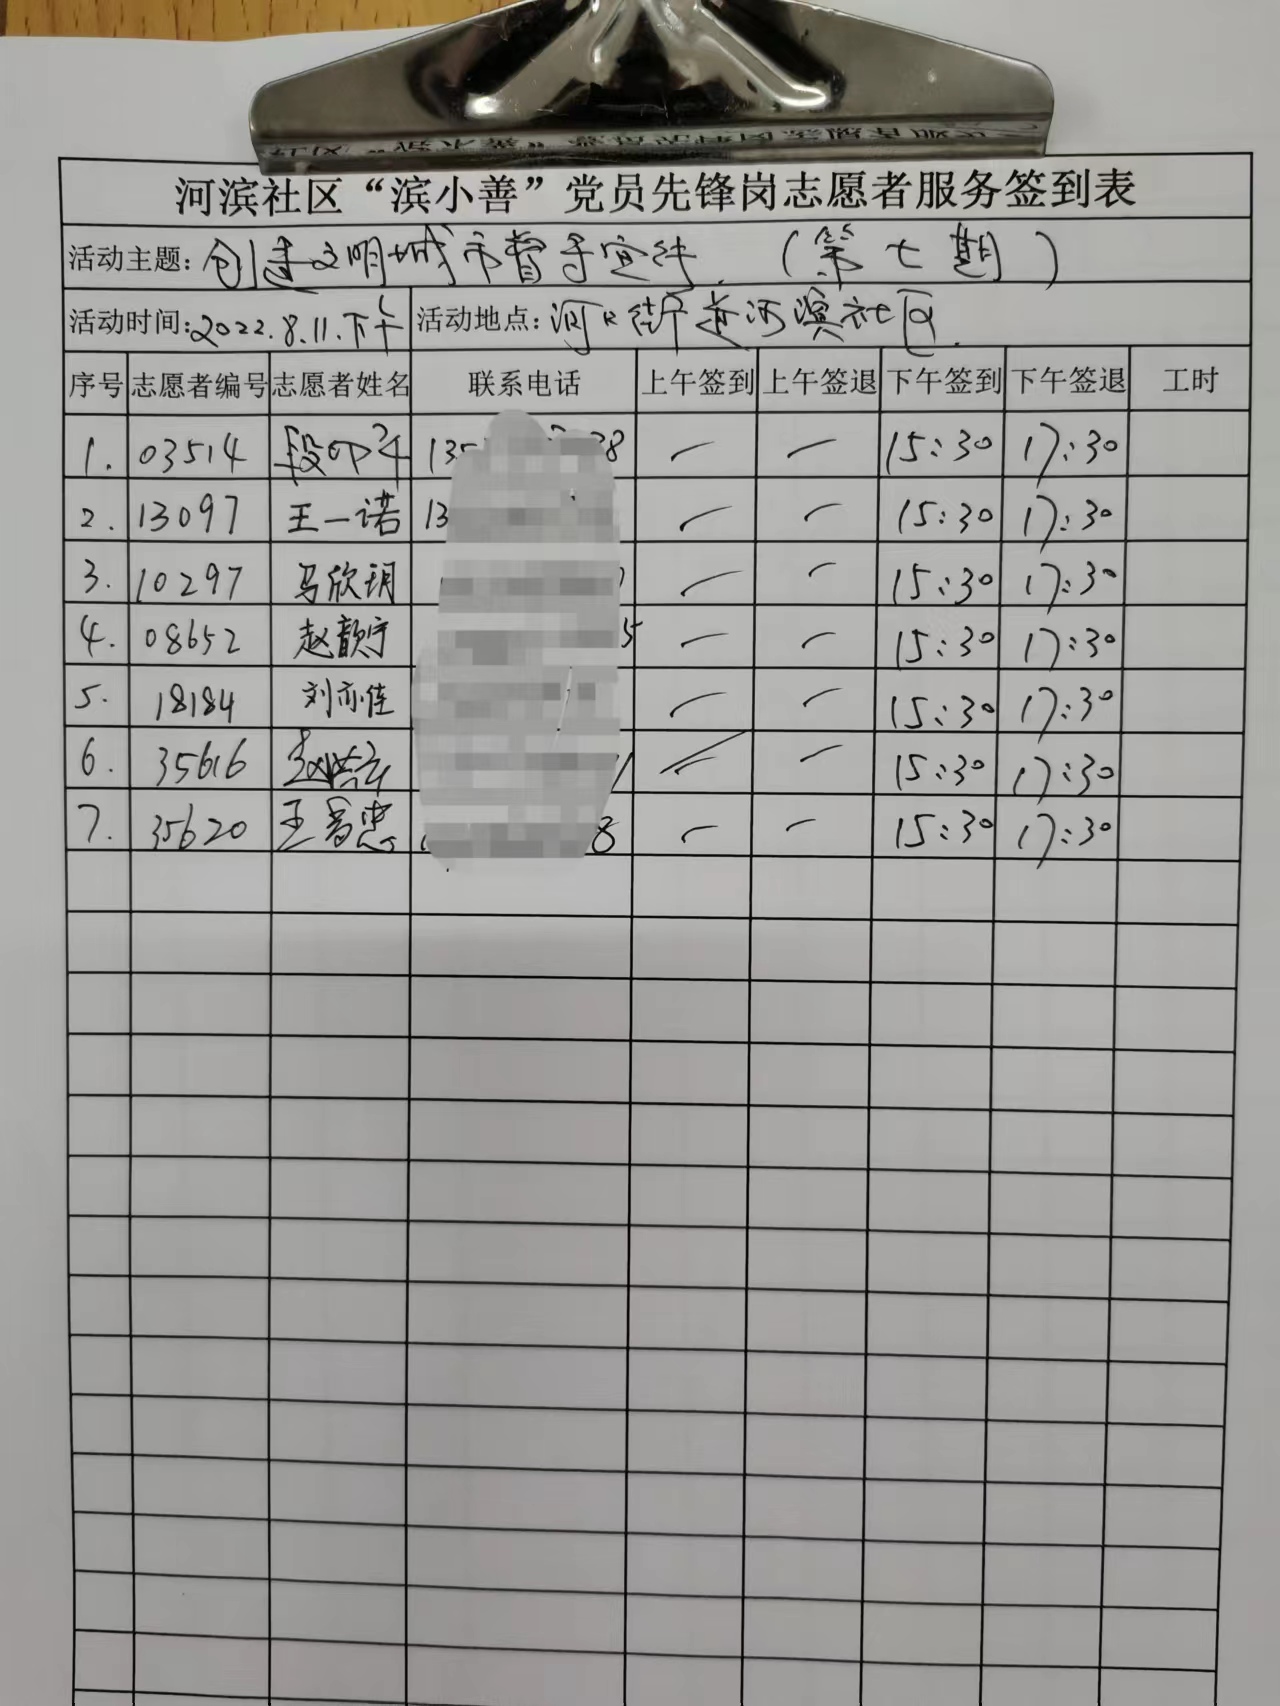 河滨社区“滨小善”党员先锋岗志愿者服务签到表
活动主题：创建文明城市督导宣传（第七期）
活动时间：2022.8.11.下午 活动地点：河口街道河滨社区.
序号 志愿者编号 志愿者姓名 联系电话 上午签到 上午签退 下午签到 下午签退 工时
1. 03514 段 135 38 — — 15:30 17:30
2. 13097 王一诺 13 — — 15:30 17:30
3. 10297 马欣玥 — — 15:30 17:30
4. 08652 赵歆宁 5 — — 15:30 17:30
5. 18184 刘亦佳 — — 15:30 17:30
6. 35616 — — 15:30 17:30
7. 35620 王 忠 8 — — 15:30 17:30